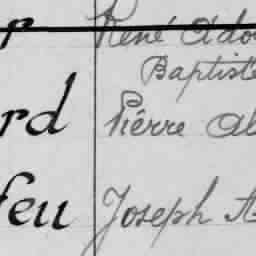 René Ado
Baptiste
rd Pierre Al
feu Joseph A